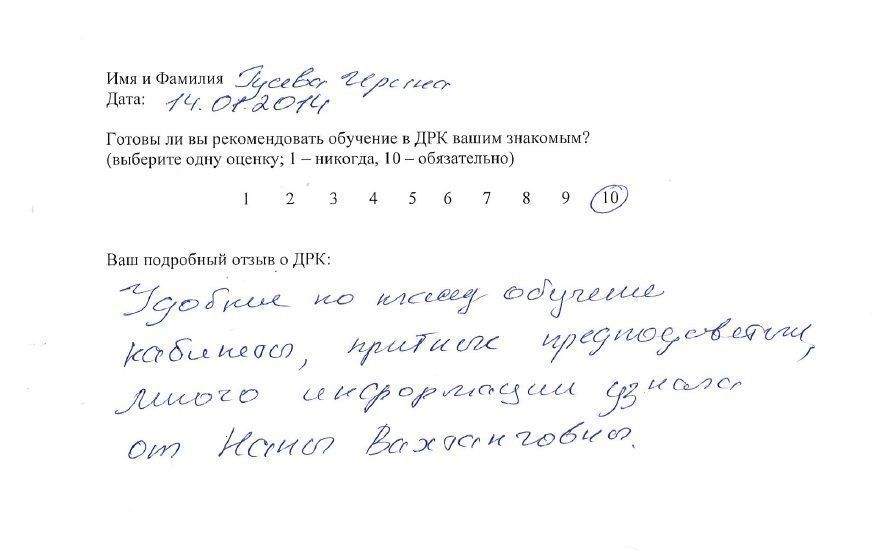 Имя и Фамилия Гусева Ирина
Дата: 14.01.2014
Готовы ли вы рекомендовать обучение в ДРК вашим знакомым?
(выберите одну оценку; 1 – никогда, 10 – обязательно)
1 2 3 4 5 6 7 8 9 10
Ваш подробный отзыв о ДРК:
Удобные по обучение
кабинеты,
много информации узнала
от Наны Вахтанговны.